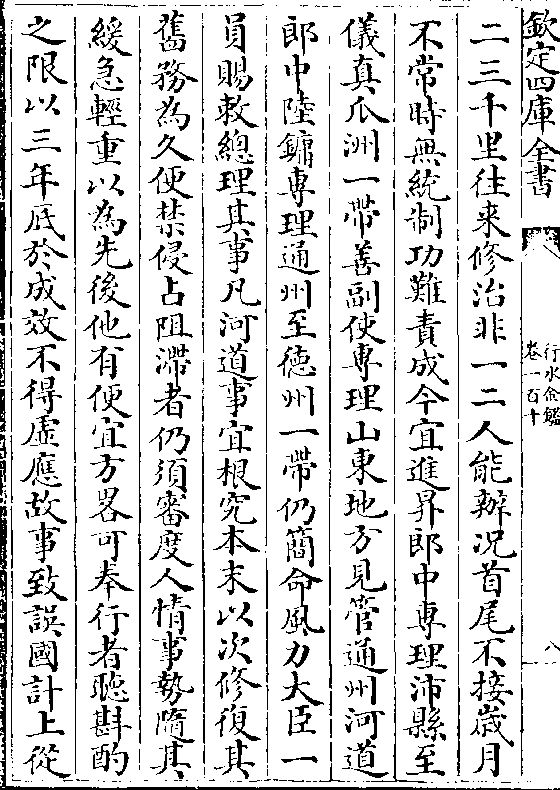 欽定四庫全書
行水金鑑
卷一百十
八
二三千里往来修治非一二人能辦况首尾不接歲月
不常時無統制功難責成今宜進昇郎中專理沛縣至
儀真瓜洲一帶善副使專理山東地方見管通州河道
郎中陸鏞專理通州至徳州一帶仍簡命風力大臣一
員賜敕總理其事凡河道事宜根究本末以次修復其
舊務為久便禁侵占阻滯者仍須審度人情事勢隨其
緩急輕重以為先後他有便宜方畧可奉行者聽斟酌
之限以三年底於成效不得虚應故事致誤國計上從